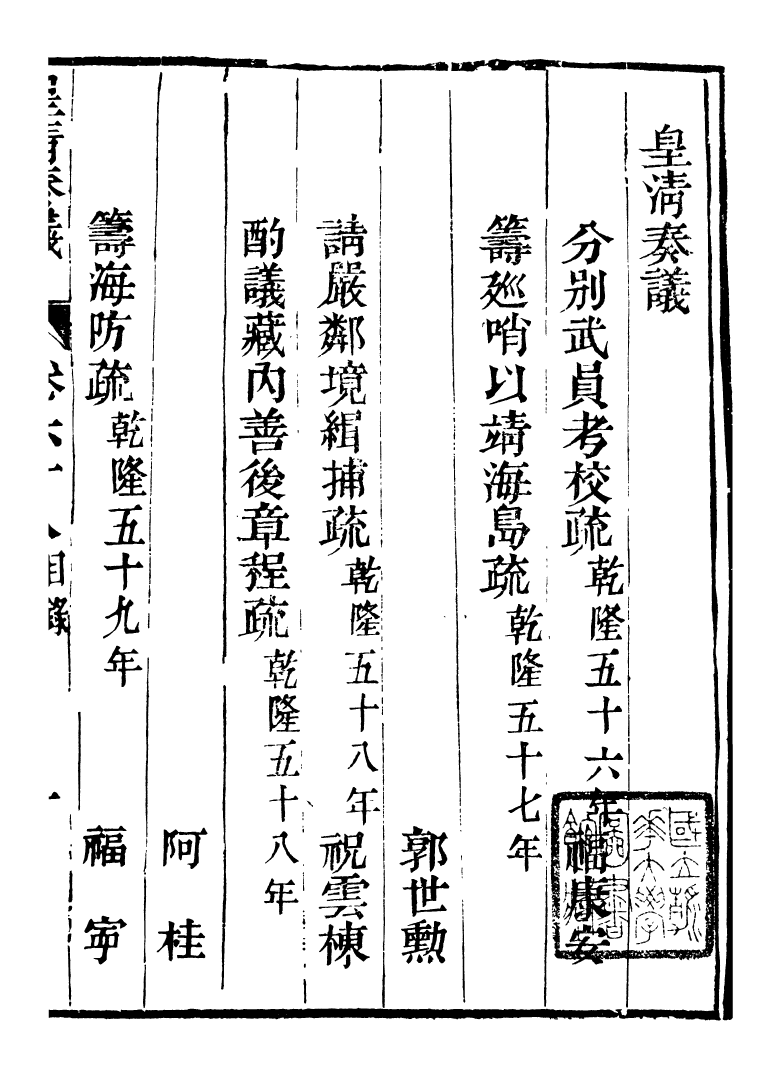 皇淸奏議
分別武員考校疏 乾隆五十六年 福康安
籌廵哨以靖海島疏 乾隆五十七年
郭世勲
請嚴鄰境緝捕疏 乾隆五十八年 祝雲棟
酌議藏內善後章程疏 乾隆五十八年
阿桂
籌海防疏 乾隆五十九年 福寧
皇淸奏議 卷六十八目錄 一